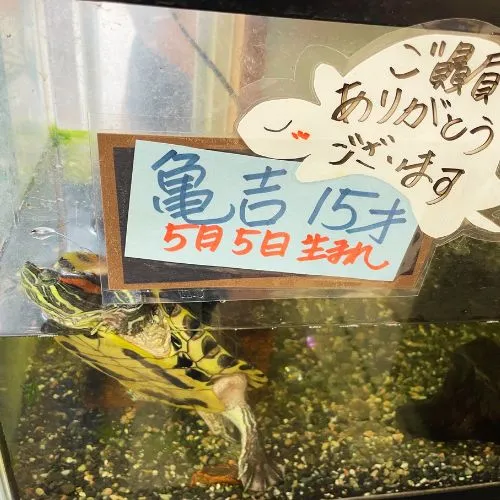 ご贔屓
ありがとう
ございます
亀吉 15才
5月5日 生まれ